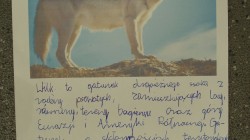 Wilk to gatunek drapieżnego ssaka z
rodziny psowatych, zamieszkujących lasy,
równiny, tereny bagienne oraz góry
Eurazji i Ameryki Północnej.